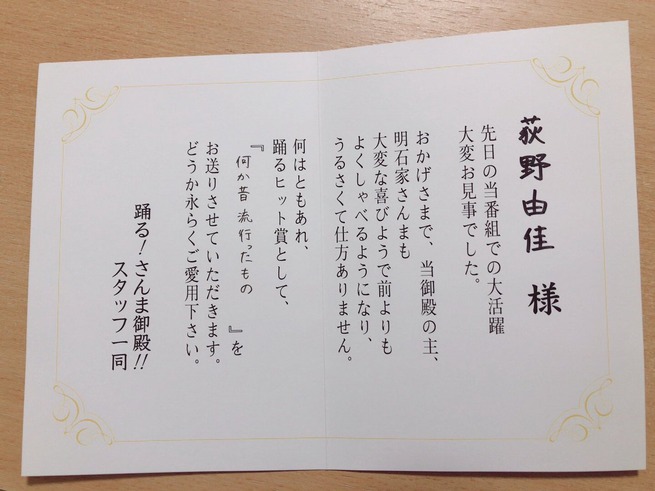 荻野由佳 様
先日の当番組での大活躍
大変お見事でした。
おかげさまで、当御殿の主、
明石家さんまも
大変な喜びようで前よりも
よくしゃべるようになり、
うるさくて仕方ありません。
何はともあれ、
踊るヒット賞として、
『何か昔流行ったもの』を
お送りさせていただきます。
どうか永らくご愛用下さい。
踊る!さんま御殿!!
スタッフ一同